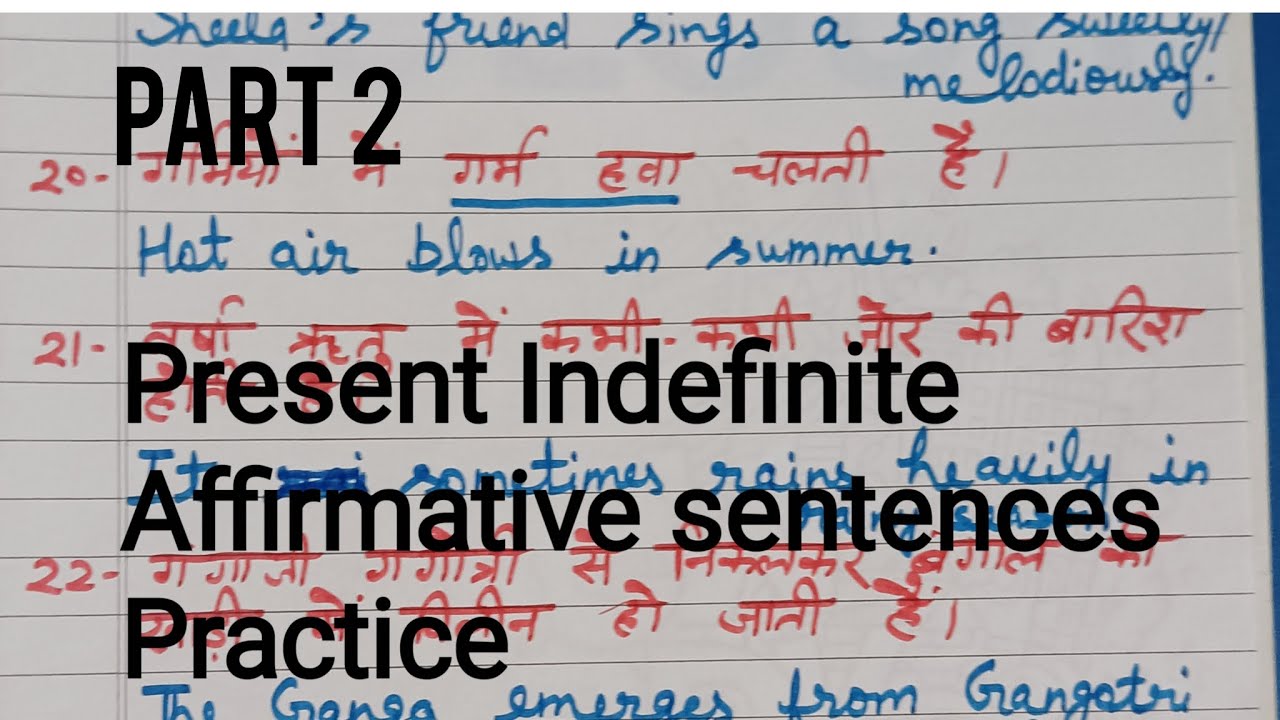 Sheela's friend sings a song sweetly/
melodiously.
PART 2
20- गर्मियों में गर्म हवा चलती है।
Hot air blows in summer.
21- वर्षा ऋतु में कभी-कभी जोर की बारिश
Present Indefinite
It sometimes rains heavily in
Affirmative sentences
22- गंगाजी गंगोत्री से निकलकर बंगाल की
खाड़ी में विलीन हो जाती हैं।
Practice
The Ganga emerges from Gangotri